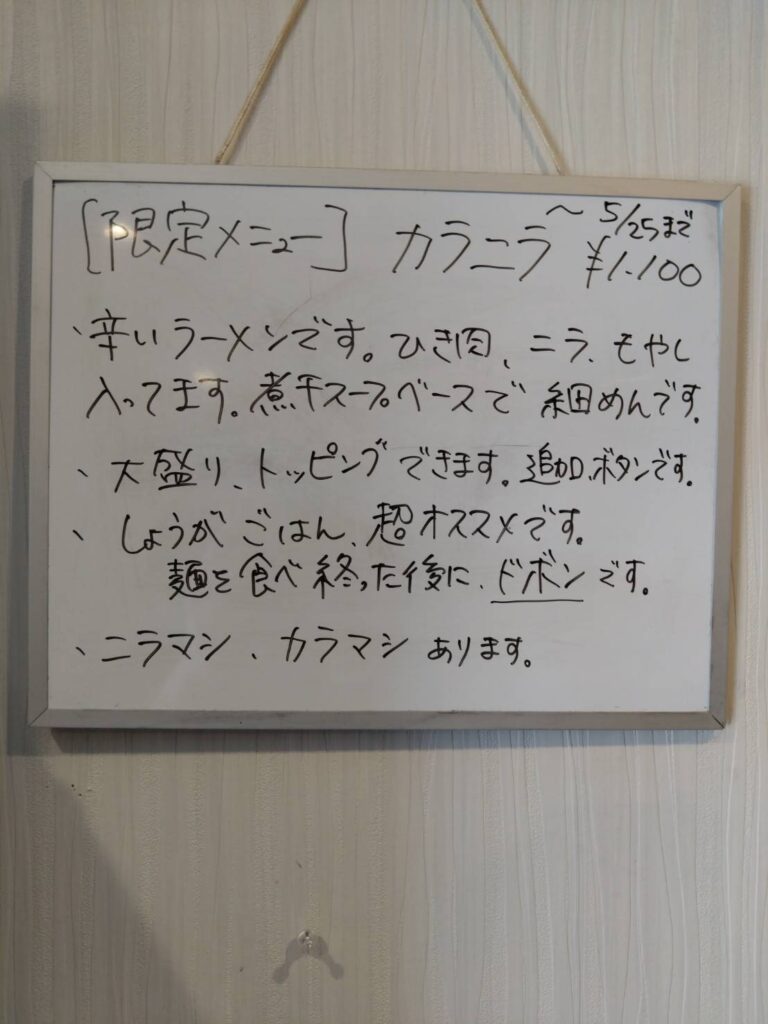 [限定メニュー] カラニラ ～5/25まで
¥1.100
、辛いラーメンです。ひき肉、ニラ、もやし
入ってます。煮干スープベースで 細めんです。
、大盛り、トッピングできます。追加ボタンです。
、しょうがごはん、超オススメです。
麺を食べ終った後に、ドボンです。
、ニラマシ、カラマシ あります。